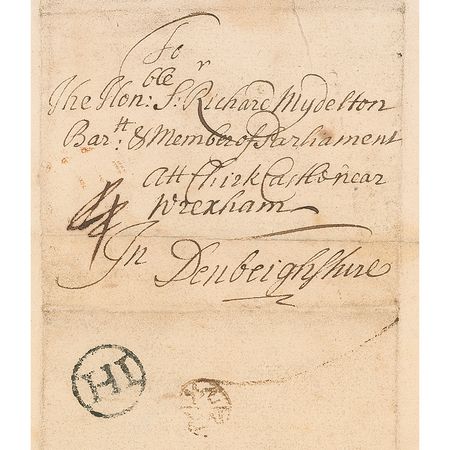 To
The Honᵇˡᵉ: Sʳ Richard Mydelton
Barᵗᵗ: & Member of Parliament
att Chirk Castle near
Wrexham
In Denbeighshire
4
IH